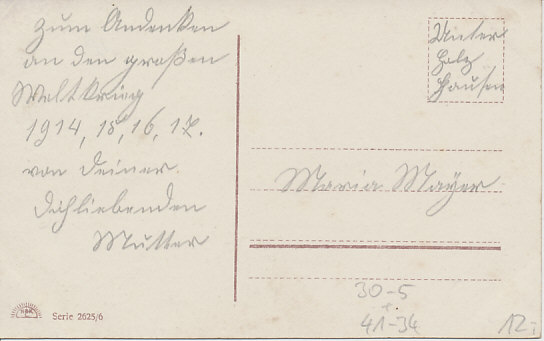 Zum Andenken
an den großen
Weltkrieg
1914, 15, 16, 17.
von deiner
dichliebenden
Mutter
Unter
holz
hausen
Maria Mayer
30-5
41-34
12.-
Serie 2625/6